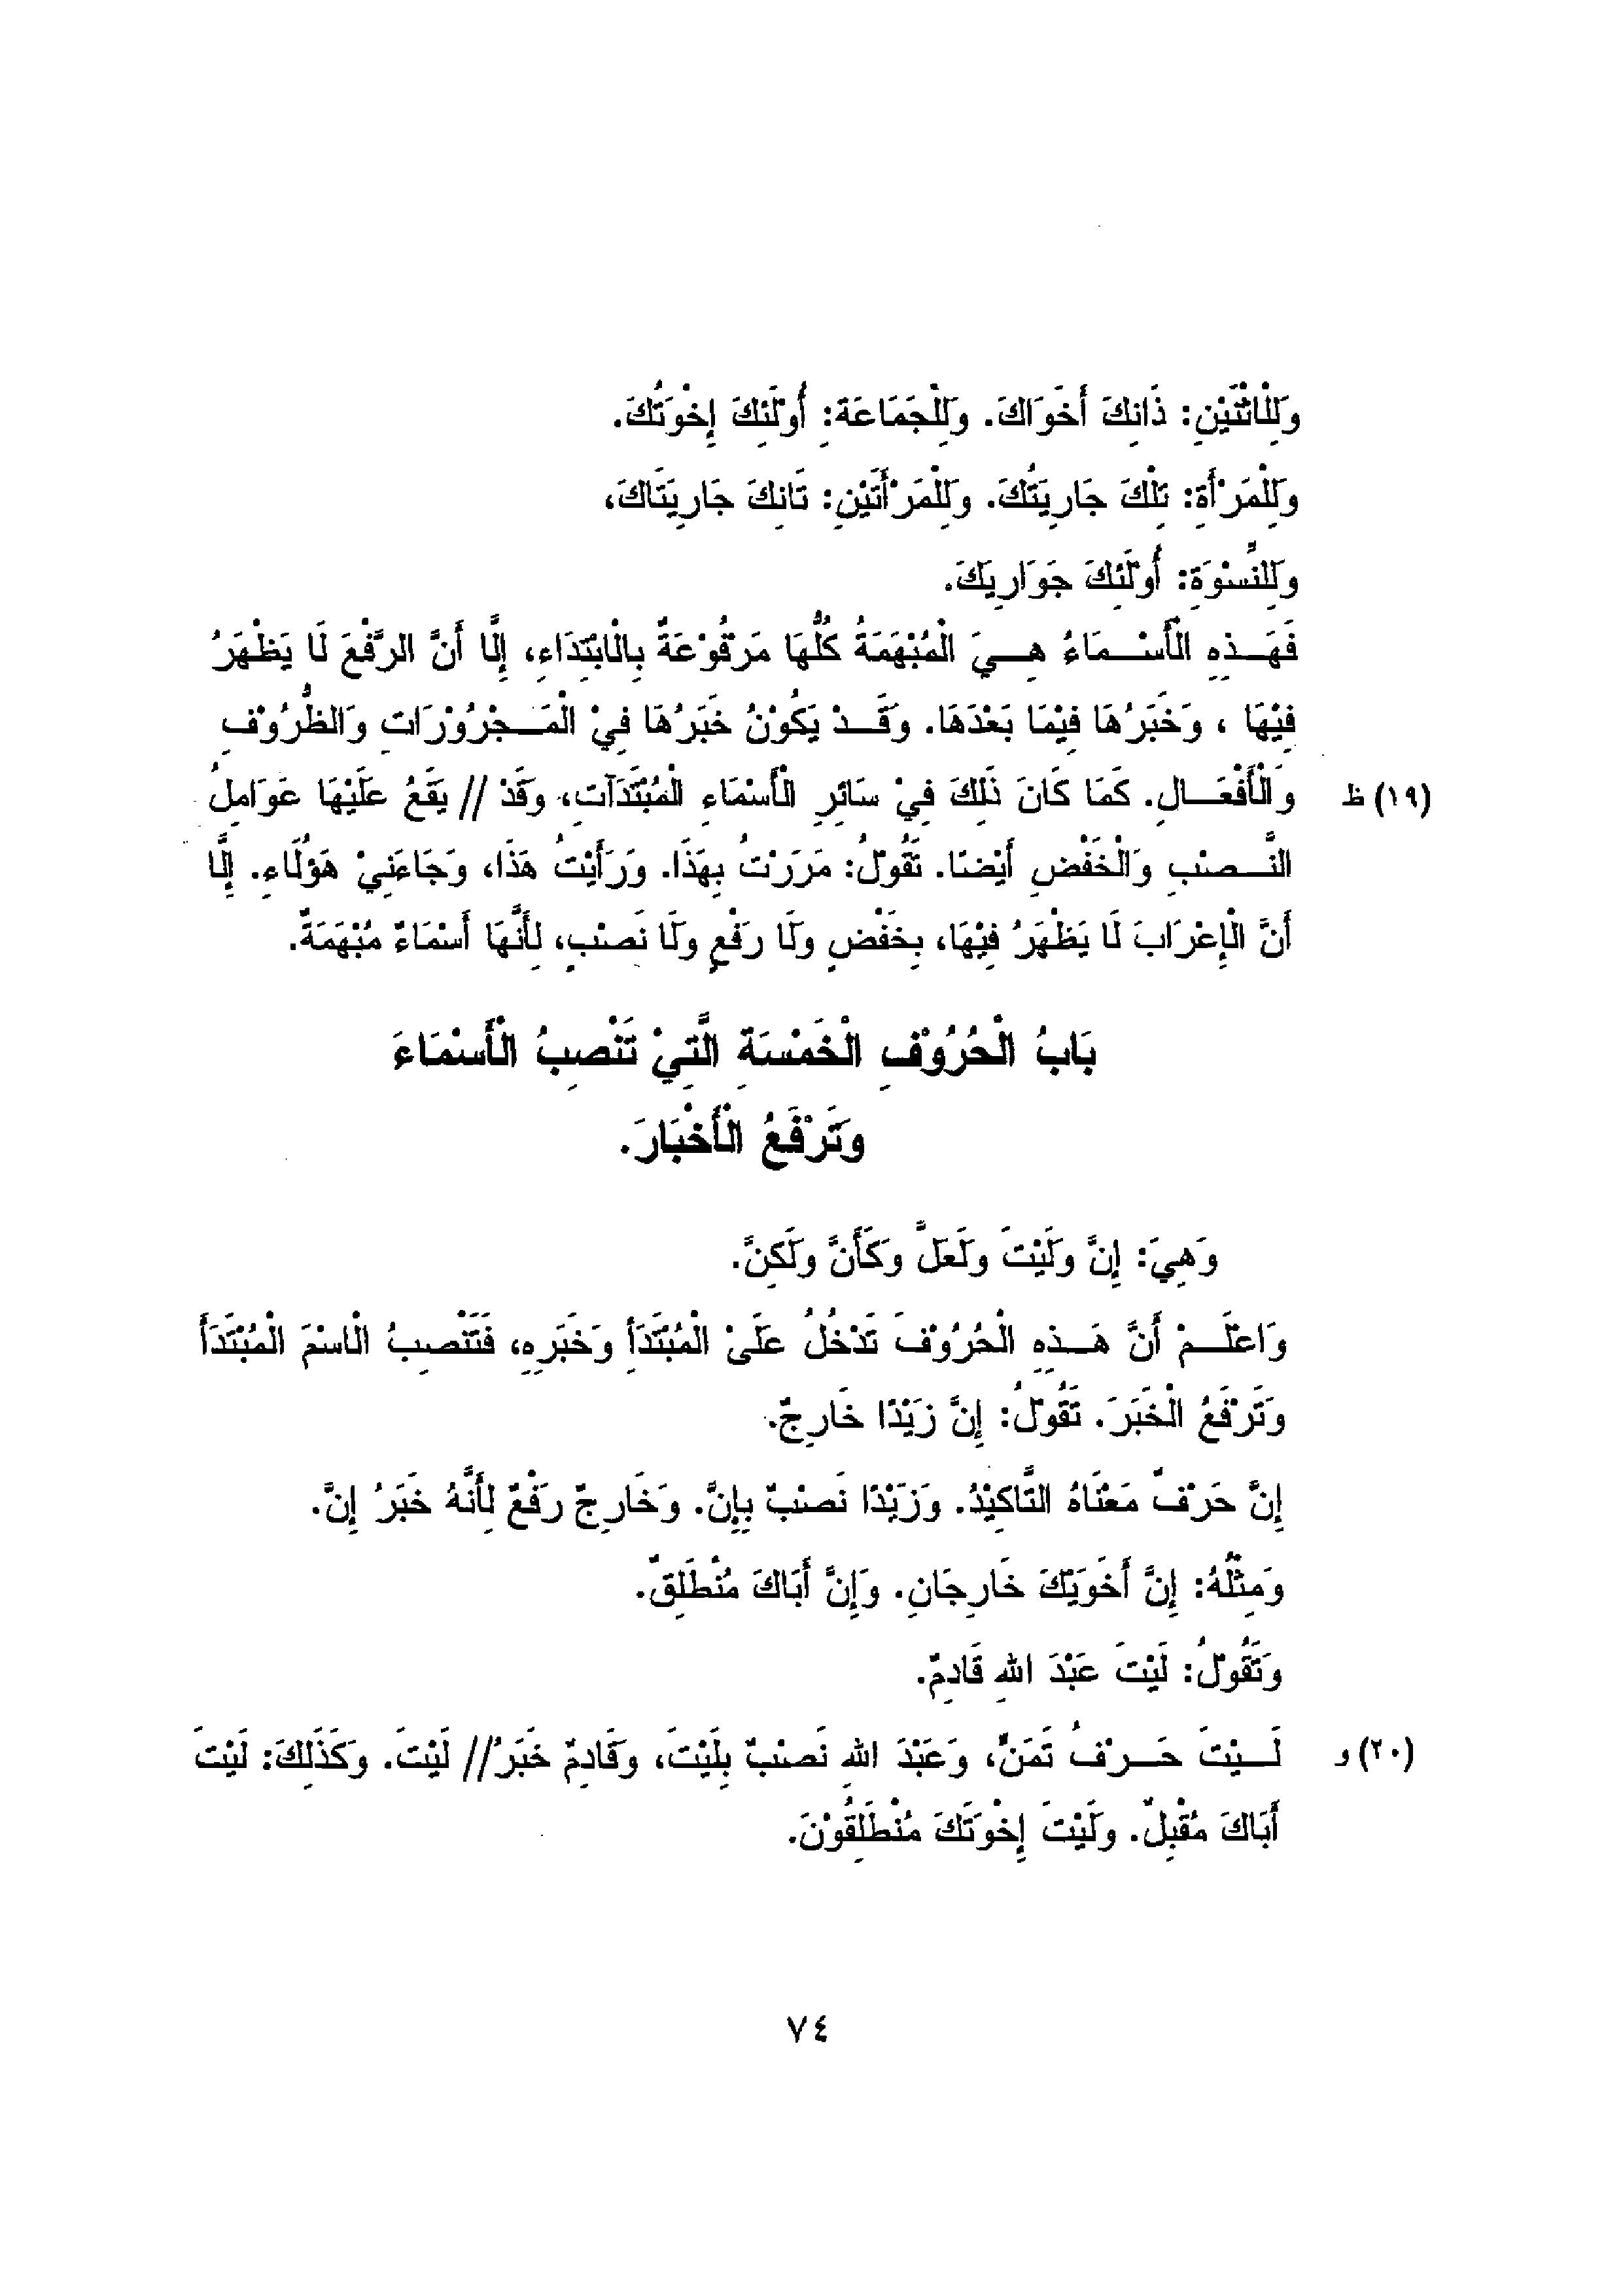 وَلِلْاثْنَيْنِ: ذَانِكَ أَخَوَاكَ. وَلِلْجَمَاعَةِ: أُولَئِكَ إِخْوَتُكَ.
وَلِلْمَرْأَةِ: تِلْكَ جَارِيَتُكَ. وَلِلْمَرْأَتَيْنِ: تَانِكَ جَارِيَتَاكَ،
وَلِلنِّسْوَةِ: أُولَئِكَ جَوَارِيكَ.
فَهَـذِهِ الْأَسْـمَاءُ هِـيَ الْمُبْهَمَةُ كُلُّهَا مَرْفُوْعَةٌ بِالْابْتِدَاءِ، إِلَّا أَنَّ الرَّفْعَ لَا يَظْهَرُ
فِيْهَا ، وَخَبَرُهَا فِيْمَا بَعْدَهَا. وَقَـدْ يَكُوْنُ خَبَرُهَا فِيْ الْمَـجْرُوْرَاتِ وَالظُّرُوْفِ
(١٩) ظ وَالْأَفْعَـالِ. كَمَا كَانَ ذَلِكَ فِيْ سَائِرِ الْأَسْمَاءِ الْمُبْتَدَآتِ، وَقَدْ // يَقَعُ عَلَيْهَا عَوَامِلُ
النَّـصْبِ وَالْخَفْضِ أَيْضًا. تَقُولُ: مَرَرْتُ بِهَذَا. وَرَأَيْتُ هَذَا، وَجَاءَنِيْ هَؤُلَاءِ. إِلَّا
أَنَّ الْإِعْرَابَ لَا يَظْهَرُ فِيْهَا، بِخَفْضٍ وَلَا رَفْعٍ وَلَا نَصْبٍ، لِأَنَّهَا أَسْمَاءٌ مُبْهَمَةٌ.
بَابُ الْحُرُوْفِ الْخَمْسَةِ الَّتِيْ تَنْصِبُ الْأَسْمَاءَ
وَتَرْفَعُ الْأَخْبَارَ.
وَهِيَ: إِنَّ وَلَيْتَ وَلَعَلَّ وَكَأَنَّ وَلَكِنَّ.
وَاعْلَـمْ أَنَّ هَـذِهِ الْحُرُوْفَ تَدْخُلُ عَلَىْ الْمُبْتَدَأِ وَخَبَرِهِ، فَتَنْصِبُ الْاسْمَ الْمُبْتَدَأَ
وَتَرْفَعُ الْخَبَرَ. تَقُولُ: إِنَّ زَيْدًا خَارِجٌ.
إِنَّ حَرْفٌ مَعْنَاهُ التَّاكِيْدُ. وَزَيْدًا نَصْبٌ بِإِنَّ. وَخَارِجٌ رَفْعٌ لِأَنَّهُ خَبَرُ إِنَّ.
وَمِثْلُهُ: إِنَّ أَخَوَيْكَ خَارِجَانِ. وَإِنَّ أَبَاكَ مُنْطَلِقٌ.
وَتَقُولُ: لَيْتَ عَبْدَ اللهِ قَادِمٌ.
(٢٠) و لَـيْتَ حَـرْفُ تَمَنٍّ، وَعَبْدَ اللهِ نَصْبٌ بِلَيْتَ، وَقَادِمٌ خَبَرُ// لَيْتَ. وَكَذَلِكَ: لَيْتَ
أَبَاكَ مُقْبِلٌ. وَلَيْتَ إِخْوَتَكَ مُنْطَلِقُوْنَ.
٧٤